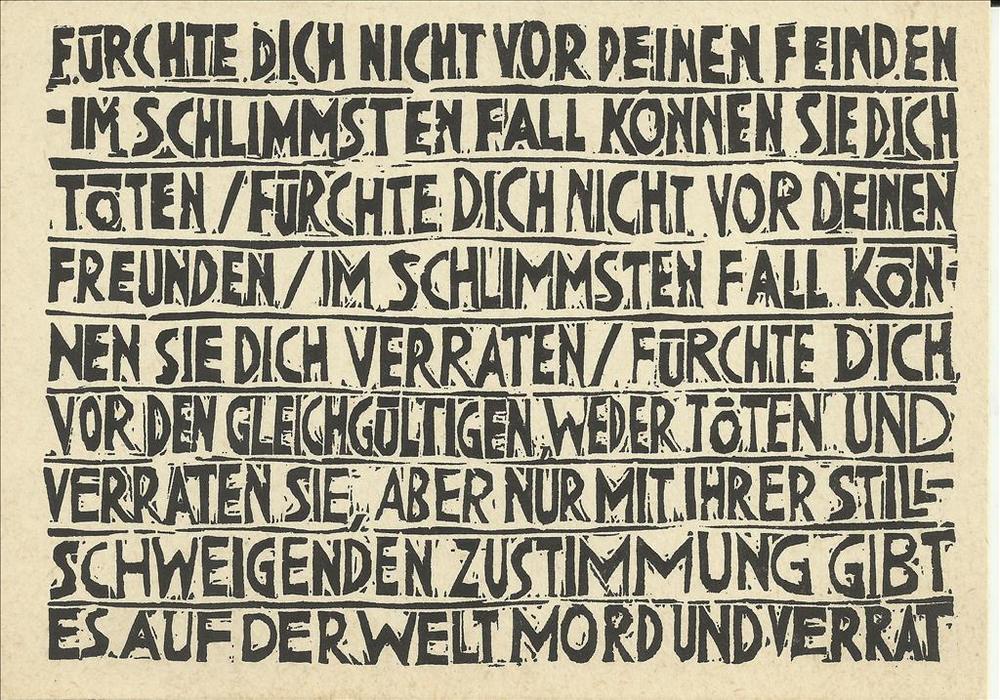 FÜRCHTE DICH NICHT VOR DEINEN FEINDEN
-IM SCHLIMMSTEN FALL KÖNNEN SIE DICH
TÖTEN / FÜRCHTE DICH NICHT VOR DEINEN
FREUNDEN / IM SCHLIMMSTEN FALL KÖN-
NEN SIE DICH VERRATEN / FÜRCHTE DICH
VOR DEN GLEICHGÜLTIGEN, WEDER TÖTEN UND
VERRATEN SIE, ABER NUR MIT IHRER STILL-
SCHWEIGENDEN ZUSTIMMUNG GIBT
ES AUF DER WELT MORD UND VERRAT